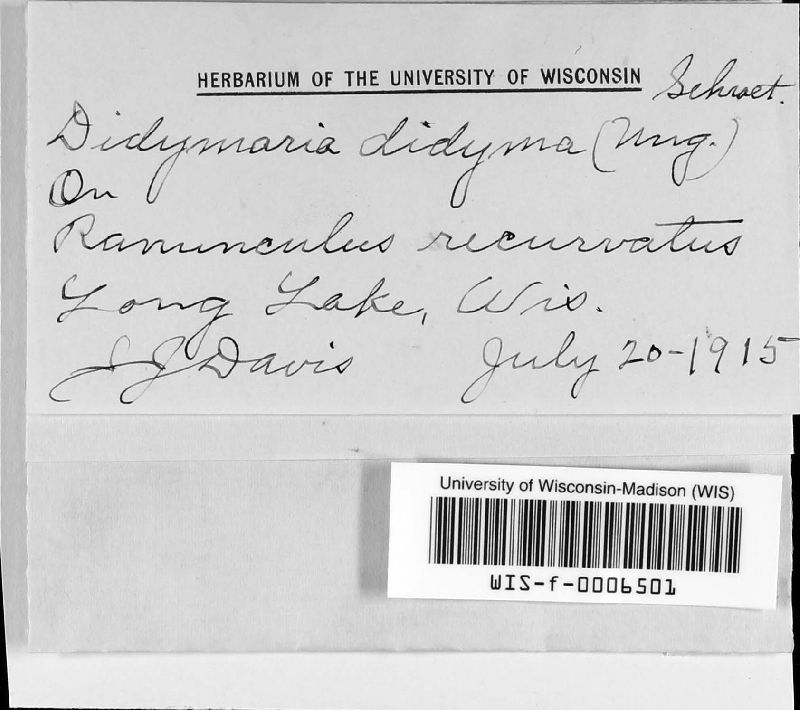 HERBARIUM OF THE UNIVERSITY OF WISCONSIN
Didymaria didyma (Ung.) Schroet.
On
Ranunculus recurvatus
Long Lake, Wis.
J J Davis July 20-1915
University of Wisconsin-Madison (WIS)
WIS-f-0006501